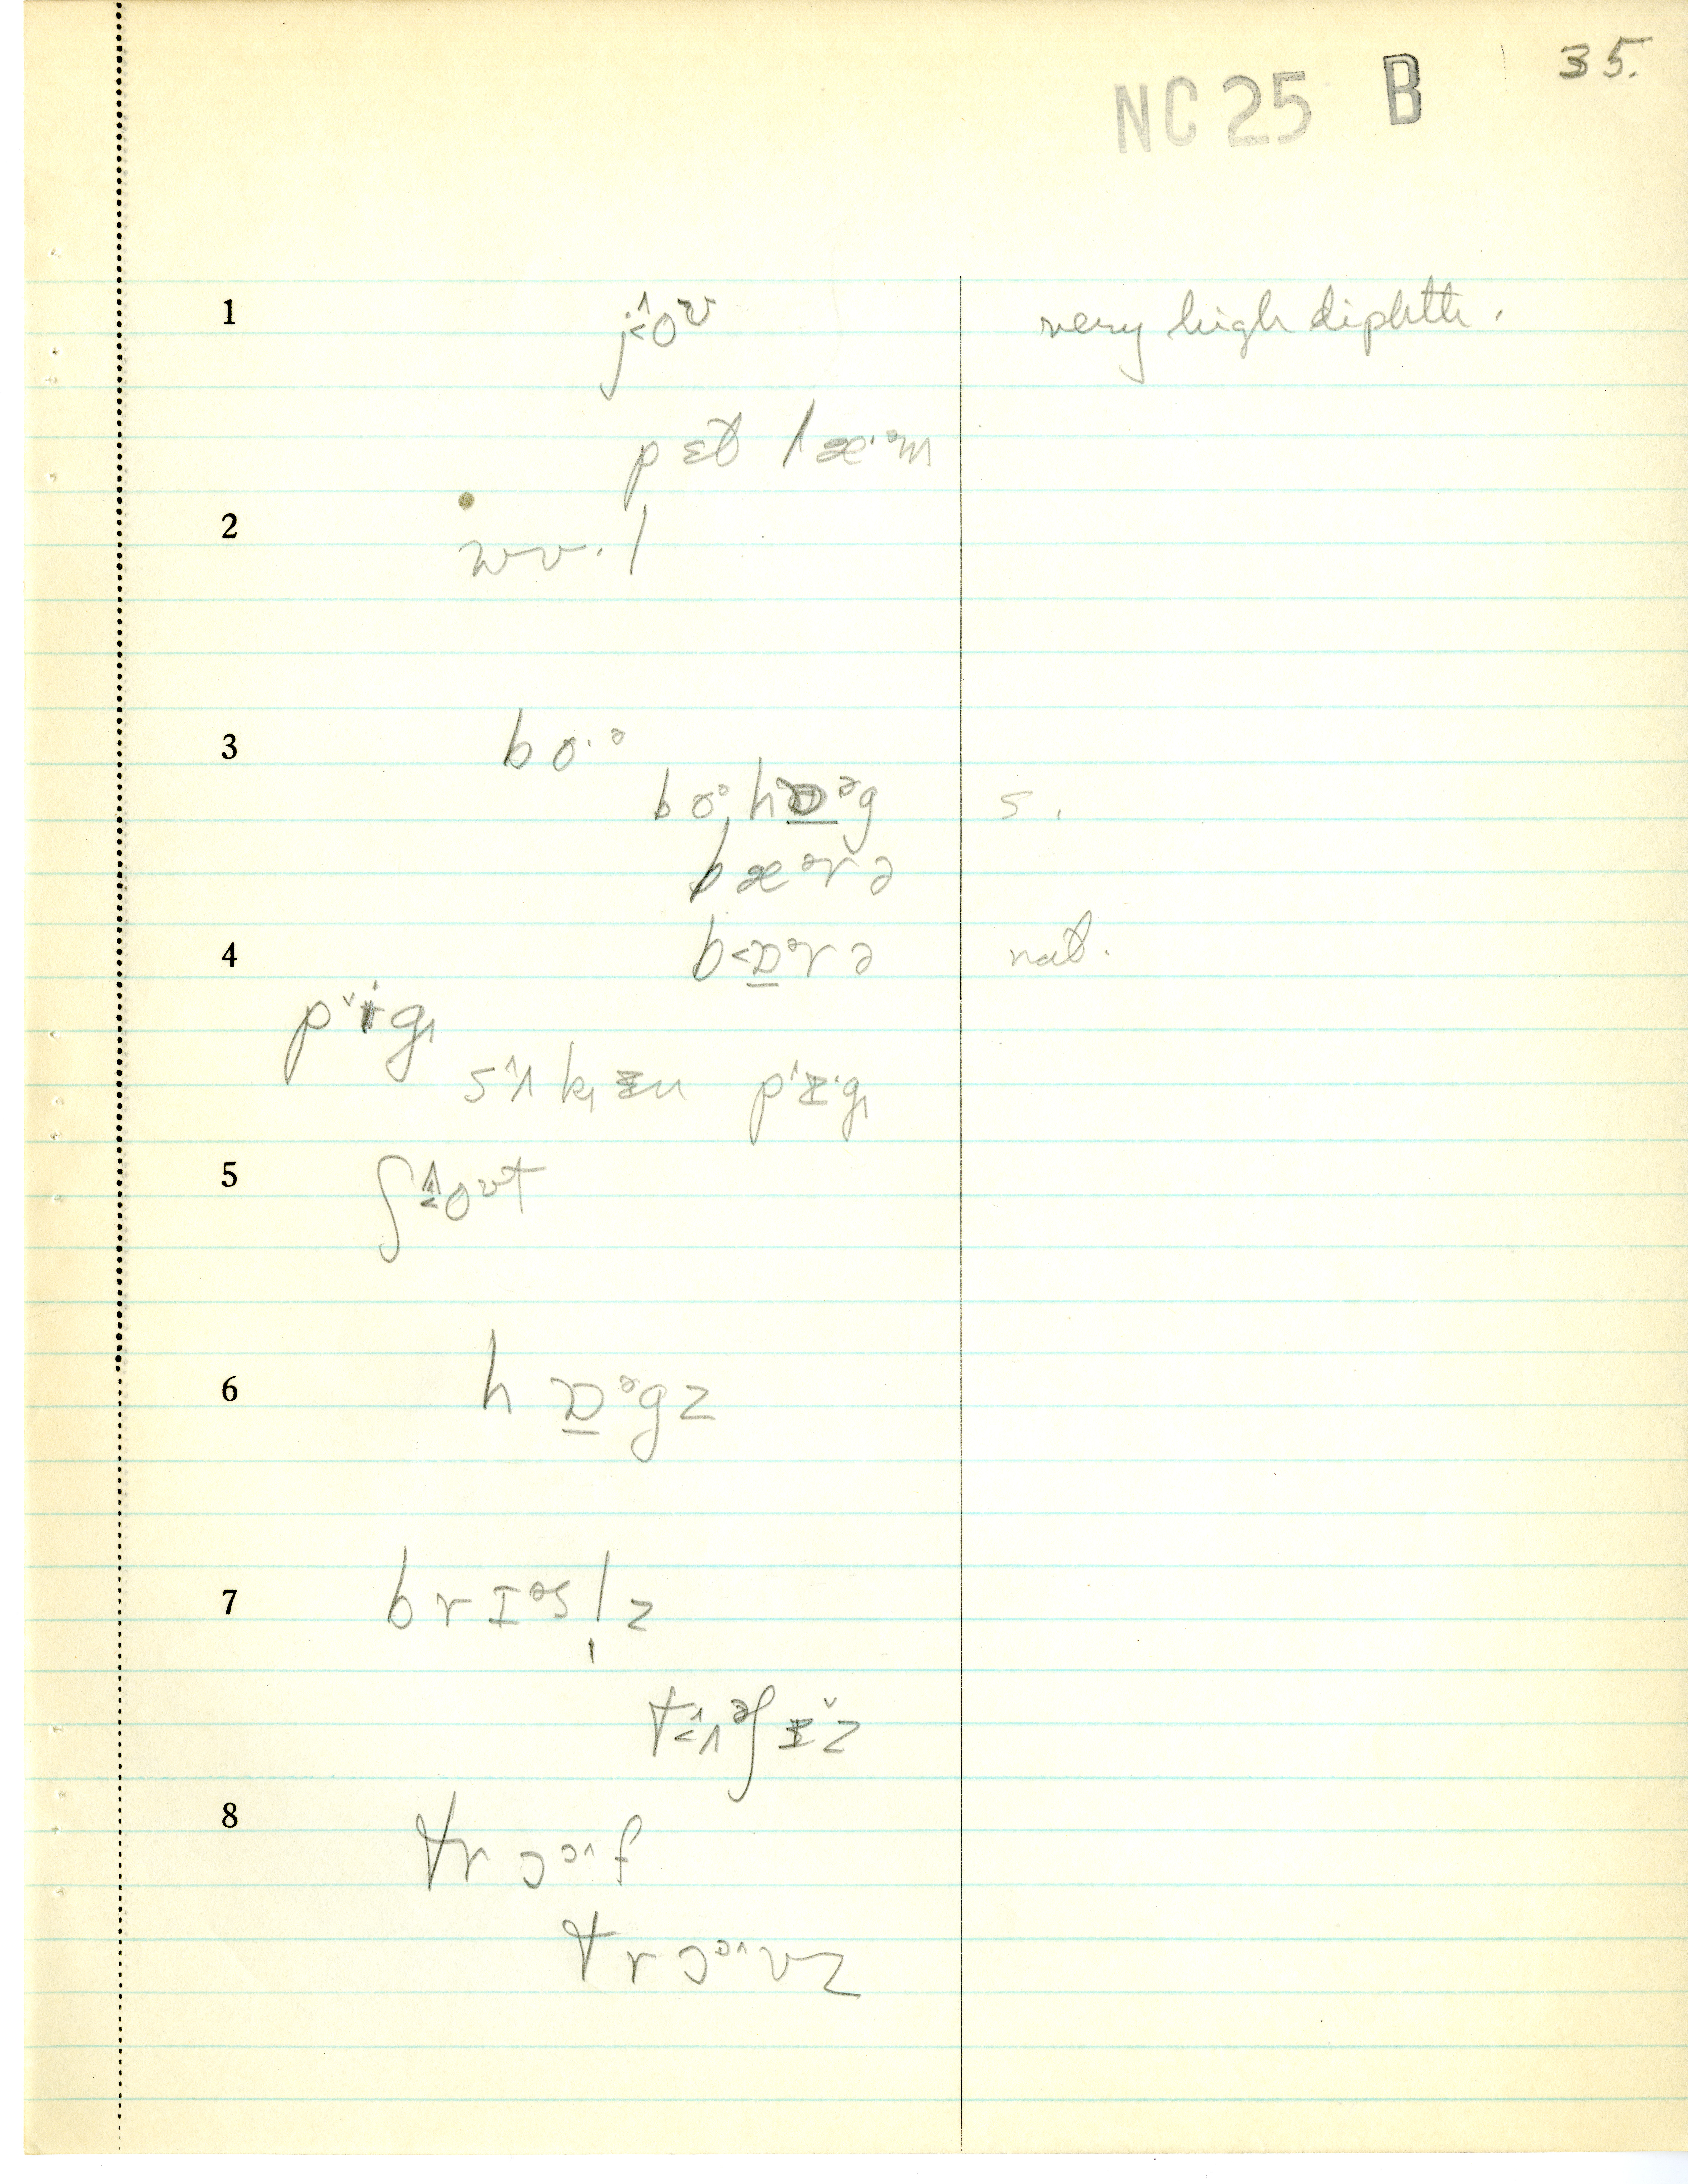 35.
NC 25 B
1 j˂˄oᶷ very high diphth.
pɛt̬ læ·ᵊm
2 wʊ·l
3 bo·ᵊ
boᵊ, hɒ̱ᵊg s.
bæᵊrə
4 b˂ɒ̱ᵊrə nat.
p˅ɨg̟
s˄ʌk̟ɨn p˄ɨ·g̟
5 ʃ˂˄oᶷt
6 hɒ̱ᵊgz
7 brɪᵊsl̩z
t˂˄ʌᵊʃɨ˅z
8 trɔᵓ˄f
trɔᵓ˄vz